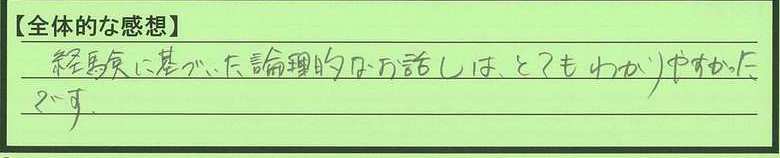 【全体的な感想】
経験に基づいた論理的なお話しは、とてもわかりやすかった
です。